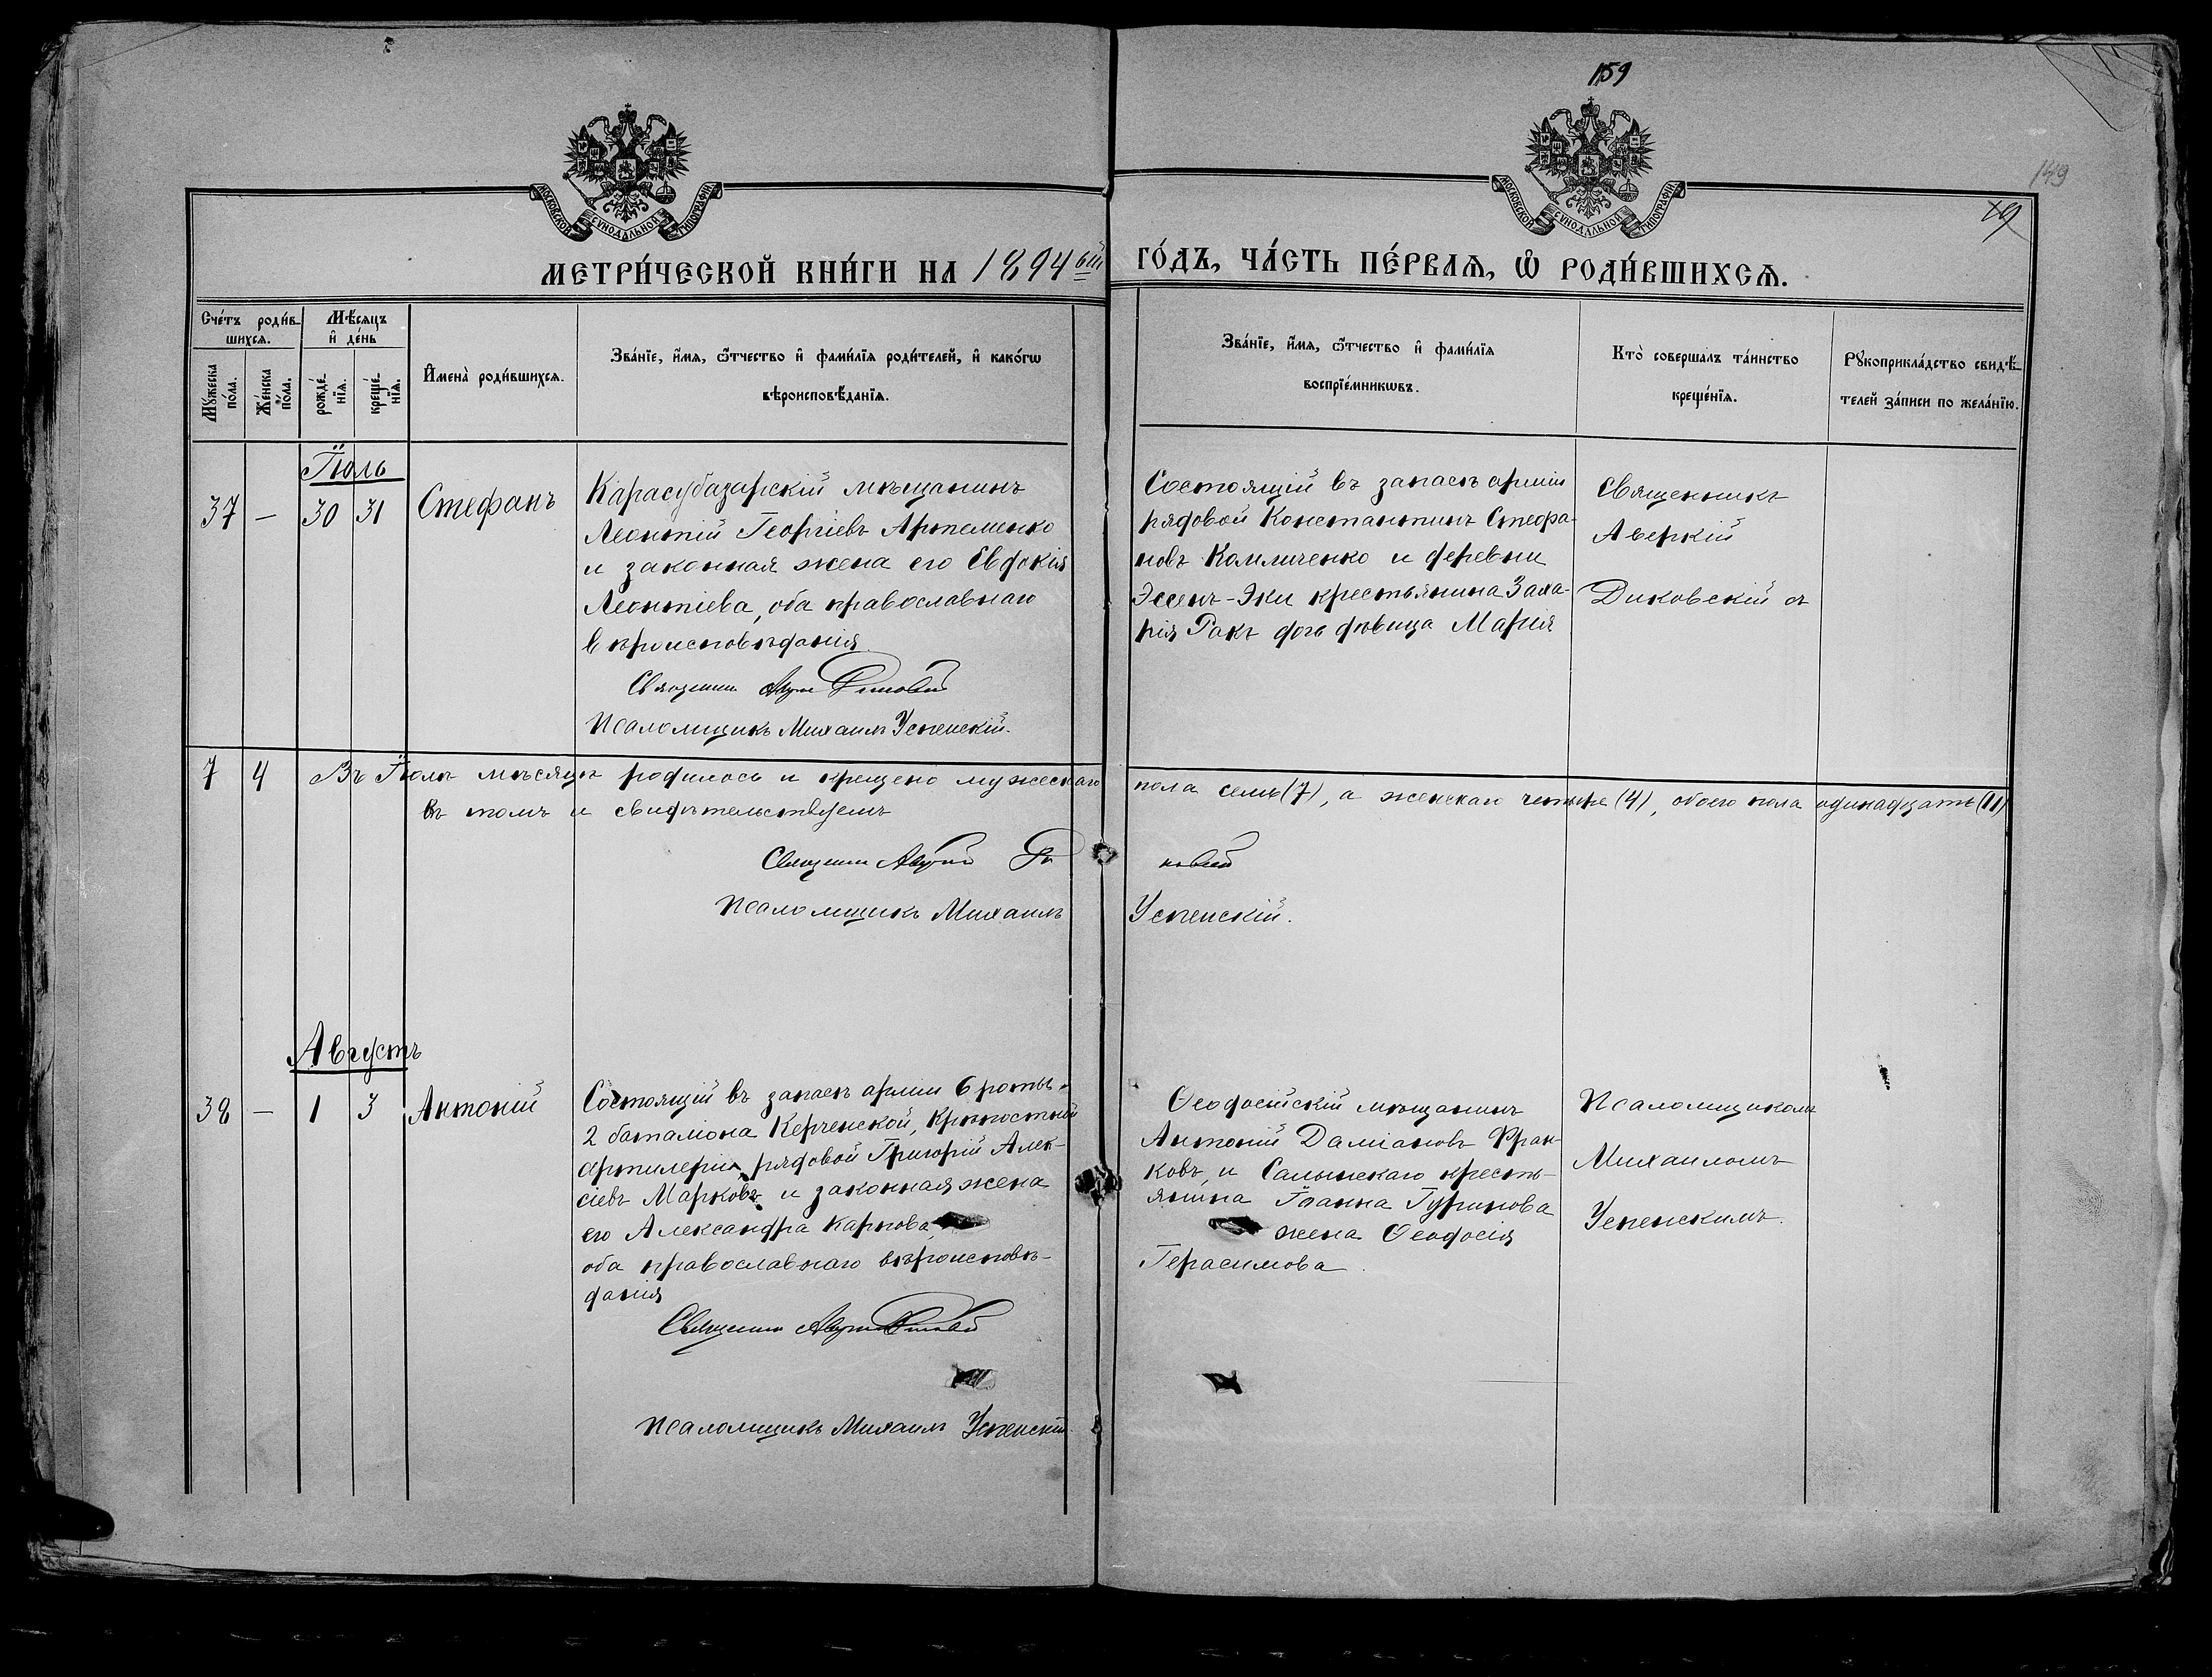 159
149
19
МОСКОВСКОЙ СУНОДАЛЬНОЙ ТИПОГРАФІИ
МОСКОВСКОЙ СУНОДАЛЬНОЙ ТИПОГРАФІИ
МЕТРИ́ЧЕСКОЙ КНИ́ГИ НА 1894ый ГО́ДЪ, ЧА́СТЬ ПЕ́РВАѦ, Ѡ РОДИ́ВШИХСѦ.
Сче́тъ роди́вшихсѧ.
Мꙋ́жеска по́ла.
Же́нска по́ла.
Мѣ́сѧцъ и де́нь
рожде́нїѧ.
креще́нїѧ.
Имена̀ роди́вшихсѧ.
Зва́нїе, и́мѧ, ѻ́тчество и фами́лїѧ роди́телей, и како́гѡ
вѣроисповѣ́данїѧ.
Зва́нїе, и́мѧ, ѻ́тчество и фами́лїѧ
воспрїе́мникѡвъ.
Кто̀ совершалъ та́инство
креще́нїѧ.
Рꙋкоприкла́дство свидѣ́-
телей за́писи по жела́нїю.
Іюль
37 — 30 31 Стефанъ
Карасубазарскій мѣщанинъ
Леонтій Георгіевъ Артеменко
и законная жена его Евдокія
Леонтіева, оба православнаго
вѣроисповѣданія
Священн
Псаломщикъ Михаилъ Успенскій.
Состоящій въ запасѣ арміи
рядовой Константинъ Стефа-
новъ Калиниченко и деревни
Эссенъ-Эки крестьянина Заха-
рія Ракъ дочь дѣвица Марія
Священникъ
Аверкій
Диковскій съ
7 4 Въ Іюлѣ мѣсяцѣ родилось и крещено мужескаго пола семь (7), а женскаго четыре (4), обоего пола одинадцать (11)
въ томъ и свидѣтельствуемъ
Священн Аверкій Диковскій
Псаломщикъ Михаилъ Успенскій.
Августъ
38 — 1 3 Антоній
Состоящій въ запасѣ арміи 6 роты
2 баталіона Керченской, Крѣпостной
артилеріи рядовой Григорій Алек-
сіевъ Марковъ и законная жена
его Александра Карпова,
оба православнаго вѣроисповѣ-
данія
Священн
Псаломщикъ Михаилъ Успенскій
Ѳеодосійскій мѣщанинъ
Антоній Даміановъ Фран-
ковъ, и Салынскаго кресть-
янина Іоанна Гуринова
жена Ѳеодосія
Герасимова
Псаломщикомъ
Михаиломъ
Успенскимъ.